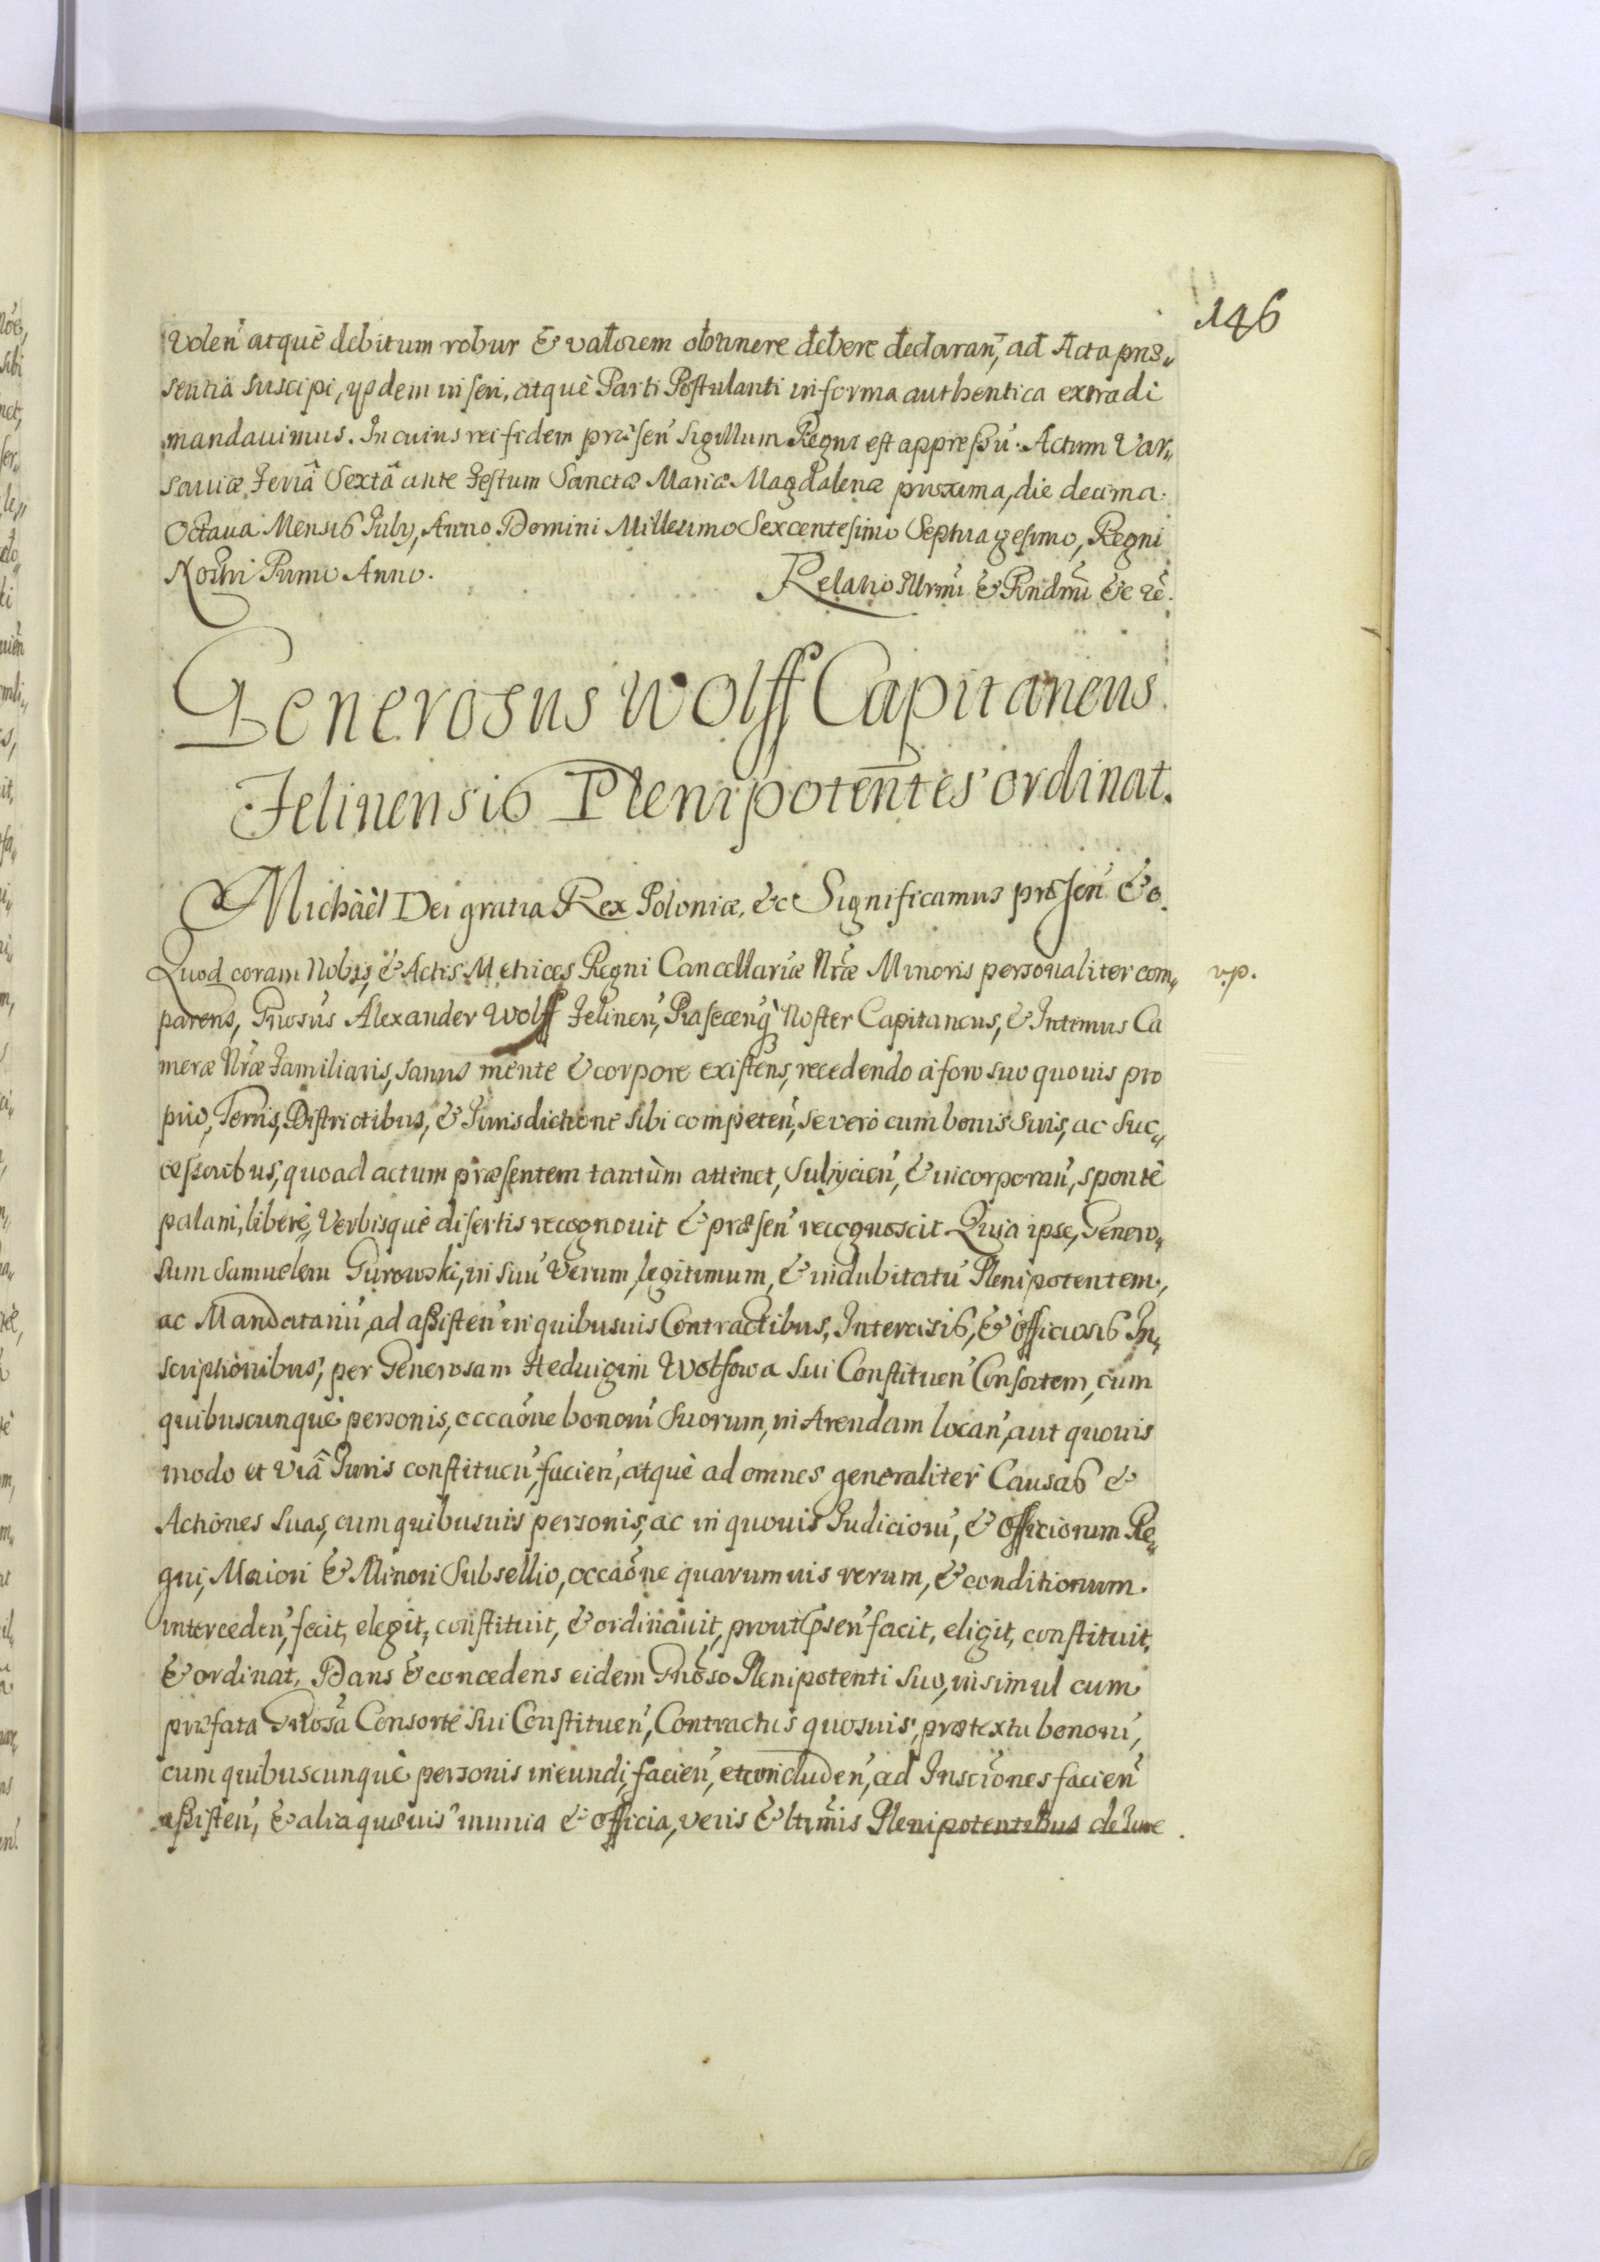 146
Volen̄ atquè debitum robur & valorem obtinere debere declaran̄, ad Acta præ„
sentia suscipi, ijsdem inseri, atquè Parti Postulanti in forma authentica extradi
mandauimus. In cuius rei fidem præsen̄ Sigillum Regni est appressū. Actum Var„
sauiæ, Feriâ Sextâ ante Festum Sanctæ Mariæ Magdalenæ proxima, die decima
Octaua Mensis July, Anno Domini Millesimo Sexcentesimo Septuagesimo, Regni
Nostri Primo Anno. Relatio Illrmi & Rndmi &c
Generosus Wolff Capitaneus
Felinensis Plenipotentes ordinat.
Michäel Dei gratia Rex Poloniæ, &c Significamus præsen̄ &c.
Quod coram Nobis, & Actis Metrices Regni Cancellariæ Nr̄æ Minoris personaliter com„ v.p.
parens, Gnosus Alexander Wolff Felinen̄, Piaseceng̀ Noster Capitaneus, & Intimus Ca
meræ Nr̄æ Familiaris, sanus mente & corpore existens, recedendo à foro suo quouis pro
prio, Terris, Districtibus, & Jurisdictione sibi competen̄, se verò cum bonis suis, ac suc„
cessoribus, quoad actum præsentem tantùm attinet, subijcien̄, & incorporan̄, spontè
palam, liberè, Verbisquè disertis recognouit & præsen̄ recognoscit. Quia ipse, Genero„
sum Samuelem Gurowski, in suū Verum, legitimum, & indubitatū Plenipotentem,
ac Mandatariū, ad assisten̄ in quibusuis Contractibus, Intercisis, & officiosis In„
scriptionibus, per Generosam Heduigim Wolfowa sui Constituen̄ Consortem, cum
quibuscunquè personis, occāōne bonorū suorum, in Arendam locan̄, aut quouis
modo et viâ Juris constituen̄, facien̄, atquè ad omnes generaliter Causas &
Actiones suas, cum quibusuis personis, ac in quouis Judiciorū, & officiorum Re„
gni, Maiori & Minori Subsellio, occāōne quarumuis rerum, & conditionum
interceden̄, fecit, elegit, constituit, & ordinauit, prout psen̄ facit, eligit, constituit,
& ordinat, Dans & concedens eidem Gnoso Plenipotenti suo, insimul cum
præfata Gnosa Consorte sui Constituen̄, Contractus quosuis, prætextu bonorū,
cum quibuscunquè personis ineundi, facien̄, et concluden̄, ad Insc̄iones facien̄
assisten̄, & alia quæuis munia & officia, veris & ltimis Plenipotentibus de Jure